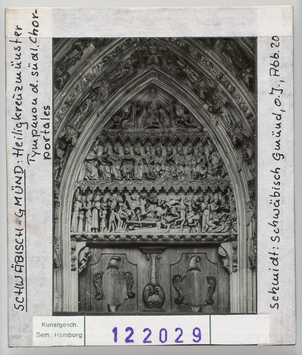 SCHWÄBISCH-GMÜND: Heiligkreuzmünster
Tympanon d. südl. Chor-
portales
Schmidt: Schwäbisch Gmünd, o.J., Abb. 20
Kunstgesch.
Sem. Hamburg
122029